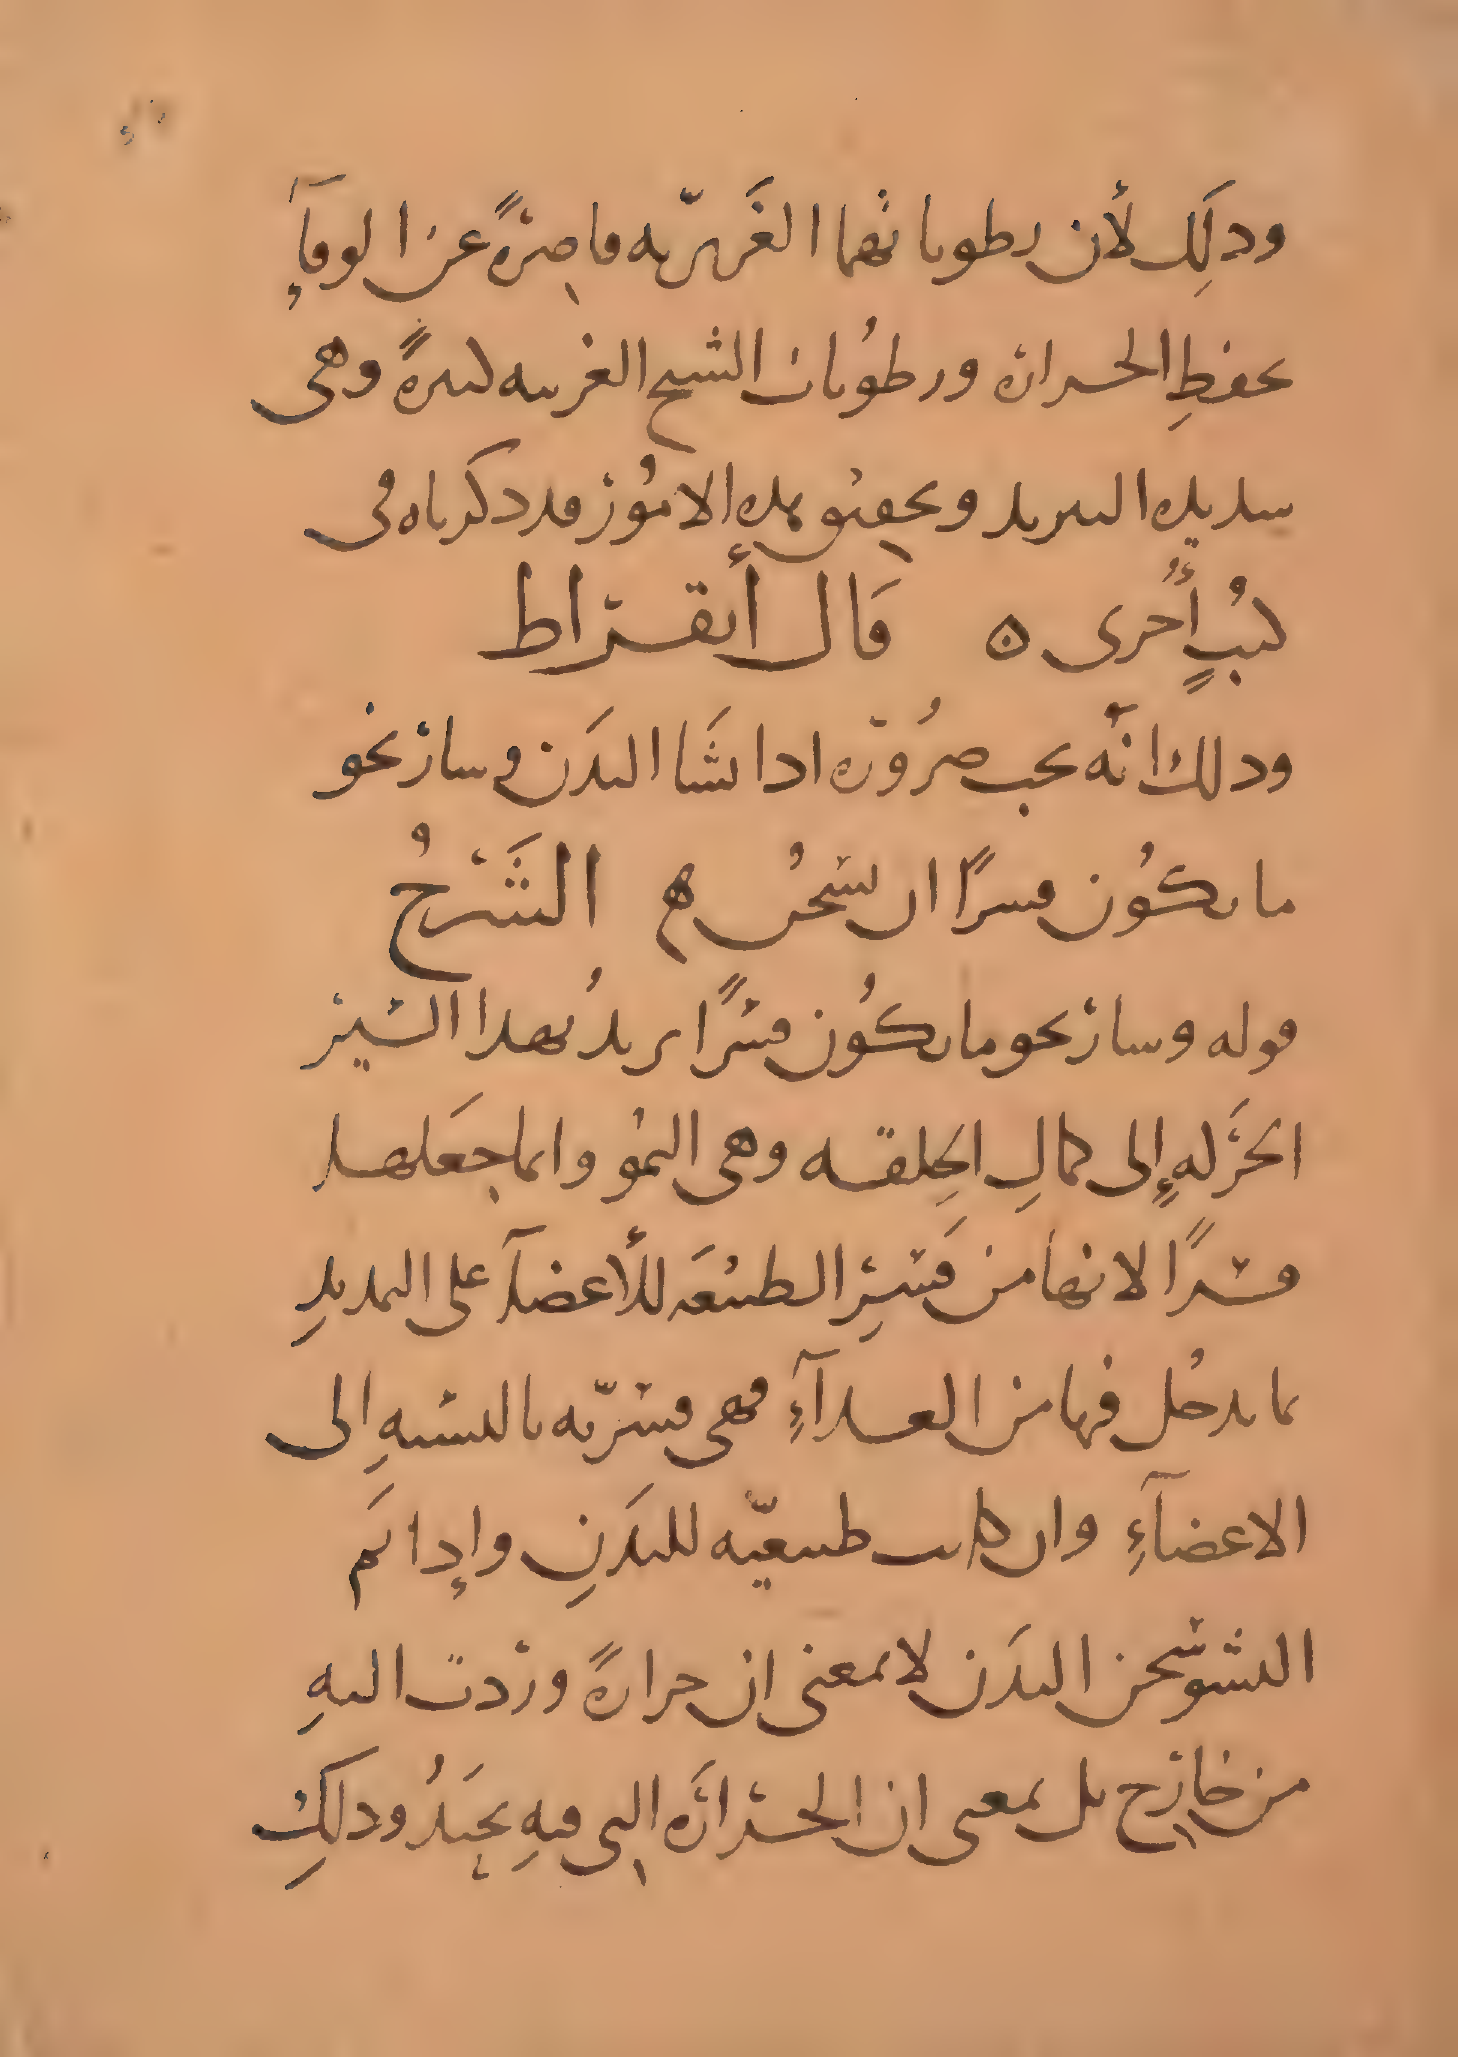 وذلك لأن رطوباتهما الغريزيّه قاصرةً عن الوفآءِ
بحفظِ الحراره ورطوُبات الشيخ الغريبه كثيرةً وهى
شديده التبريد وتحقيق هذه الامُور قد ذكرناه فى
كتُبٍ أُخرى ه قَال أبقراط
وذلك انّه يجب ضرُورَه اذا نشَا البدَن وسار نحو
ما يكُون قسرًا ان يسخُن ه الشَرْحُ
قوله وسار نحو ما يكُون قسرًا يريدُ بهذا السير
الحرَكهِ إلى كمالِ الخِلقه وهى النمُو وانما جعَلها
قسرًا لانها من قَسْرِ الطبيعَه للأعضآءِ على التمديدِ
بما يدخُل فيها من الغدآءِ فهى قسريّه بالنسبهِ الى
الاعضآءِ وان كانت طبيعيّه للبدَنِ وإذا تَم
النشو سخن البدَن لا بمعنى ان حرارةً وردت اليهِ
من خارج بل بمعنى ان الحرارَه التى فيهِ تحتَدُ وذلكِ